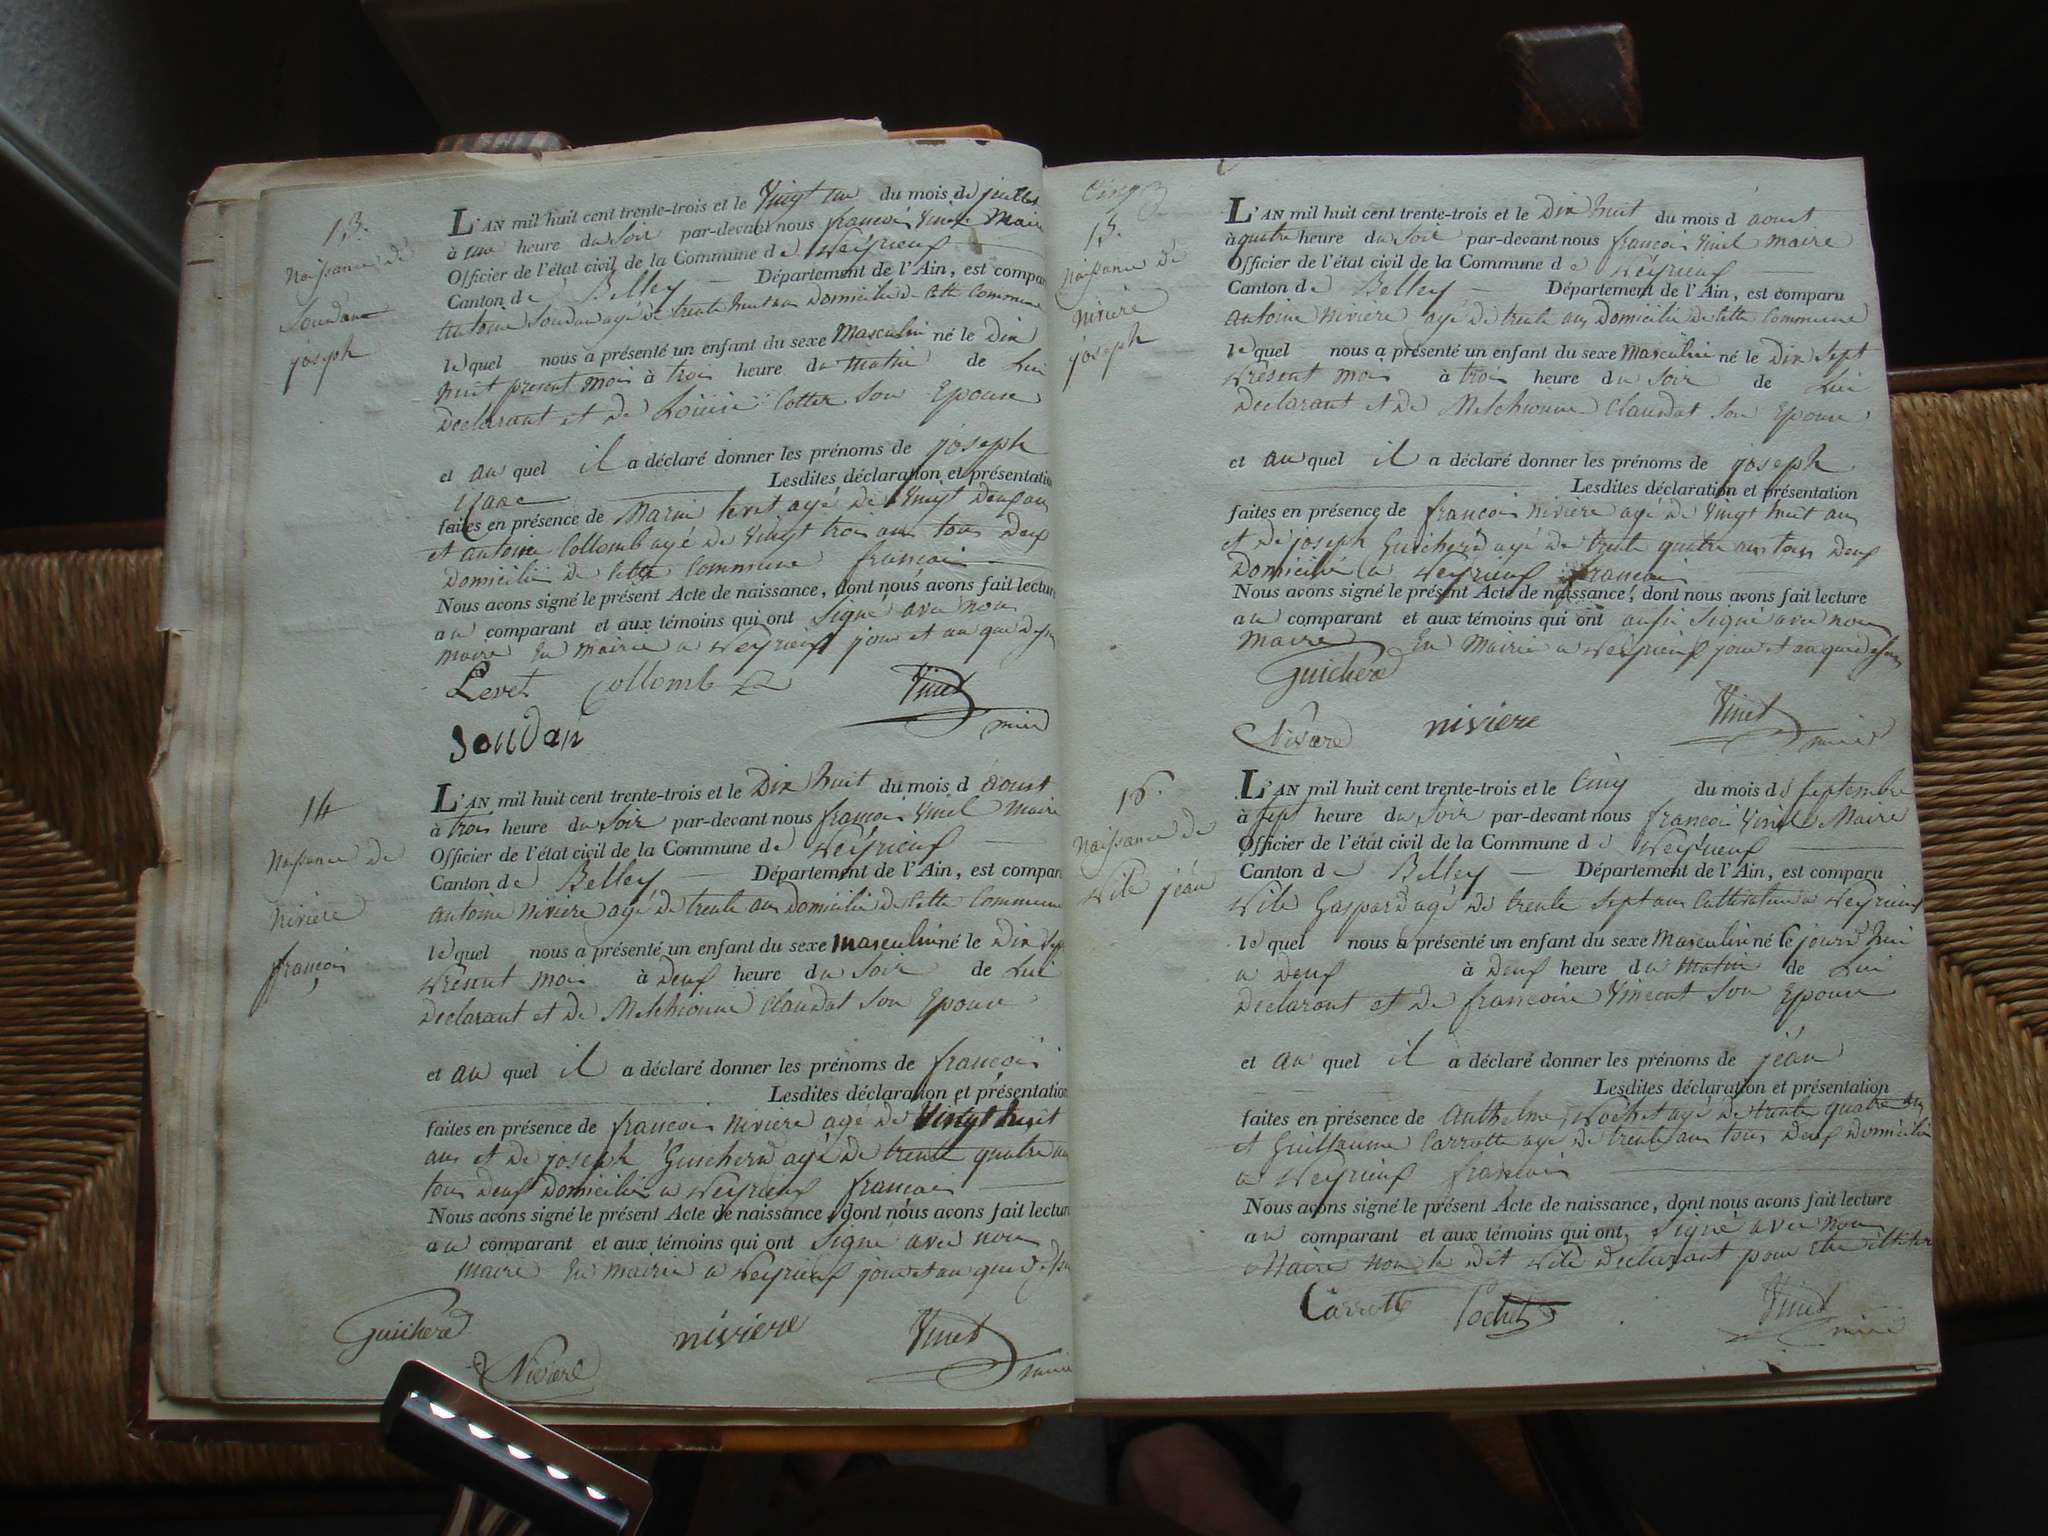 13.
Naissance de
Soudan
joseph
L'AN mil huit cent trente-trois et le Vingt un du mois de juillet
à une heure du Soir par-devant nous francois Vinet Maire
Officier de l'état civil de la Commune de
Canton de Belley Département de l'Ain, est compar
Antoine Soudan agé de trente huit ans Domicilié de Cette Commune
lequel nous a présenté un enfant du sexe Masculin né le Dix
huit present mois à trois heure du Matin de Lui
Declarant et de Louise Cotter Son Epouse
et au quel il a déclaré donner les prénoms de joseph
Lesdites déclaration et présentation
faites en présence de Marin Levet agé de Vingt Deux ans
et antoine Collomb agé de Vingt trois ans tous Deux
Domicilié de Cette Commune francois
Nous avons signé le présent Acte de naissance, dont nous avons fait lecture
au comparant et aux témoins qui ont Signé avec nous
maire En mairie a jour et an que dessus
Levet Collomb Vinet
maire
Soudan
14
Naissance de
Niviere
françois
L'AN mil huit cent trente-trois et le Dix huit du mois d aoust
à trois heure du Soir par-devant nous francois Vinet Maire
Officier de l'état civil de la Commune de
Canton de Belley Département de l'Ain, est compar
antoine niviere agé de trente ans Domicilié de Cette Commune
lequel nous a présenté un enfant du sexe masculin né le Dix Sept
present mois à Deux heure du Soir de Lui
Declarant et de Melchionne Claudat Son Epouse
et au quel il a déclaré donner les prénoms de francois
Lesdites déclaration et présentation
faites en présence de francois niviere agé de Vingt huit
ans et de joseph Guicherd agé de trente quatre ans
tous Deux Domicilié a francois
Nous avons signé le présent Acte de naissance, dont nous avons fait lecture
au comparant et aux témoins qui ont Signé avec nous
maire En mairie a jour et an que dessus
Guicherd niviere Vinet
Niviere maire
Cinq
15.
Naissance de
niviere
joseph
L'AN mil huit cent trente-trois et le Dix huit du mois d aoust
à quatre heure du Soir par-devant nous francois Vinet maire
Officier de l'état civil de la Commune de
Canton de Belley Département de l'Ain, est comparu
antoine niviere agé de trente ans Domicilié de Cette Commune
lequel nous a présenté un enfant du sexe Masculin né le Dix Sept
present mois à trois heure du Soir de Lui
Declarant et de Melchionne Claudat Son Epouse
et au quel il a déclaré donner les prénoms de joseph
Lesdites déclaration et présentation
faites en présence de francois niviere agé de Vingt huit ans
et de joseph Guicherd agé de trente quatre ans tous Deux
Domicilié a francois
Nous avons signé le présent Acte de naissance, dont nous avons fait lecture
au comparant et aux témoins qui ont aussi Signé avec nous
maire En Mairie a jour et an que dessus
Guicherd
Niviere niviere Vinet
maire
16.
Naissance de
jean
L'AN mil huit cent trente-trois et le Cinq du mois de Septembre
à sept heure du Soir par-devant nous francois Vinet Maire
Officier de l'état civil de la Commune de
Canton de Belley Département de l'Ain, est comparu
Gaspard agé de trente Sept ans Cultivateur a
lequel nous a présenté un enfant du sexe Masculin né le jourd'hui
a Deux à Deux heure du Matin de Lui
Declarant et de francoise Vincent Son Epouse
et au quel il a déclaré donner les prénoms de jean
Lesdites déclaration et présentation
faites en présence de Anthelme agé de trente quatre ans
et Guillaume Carrotte agé de trente ans tous Deux Domicilié
a francois
Nous avons signé le présent Acte de naissance, dont nous avons fait lecture
au comparant et aux témoins qui ont Signé avec nous
Maire non le dit Declarant pour être
Carrotte Vinet
maire